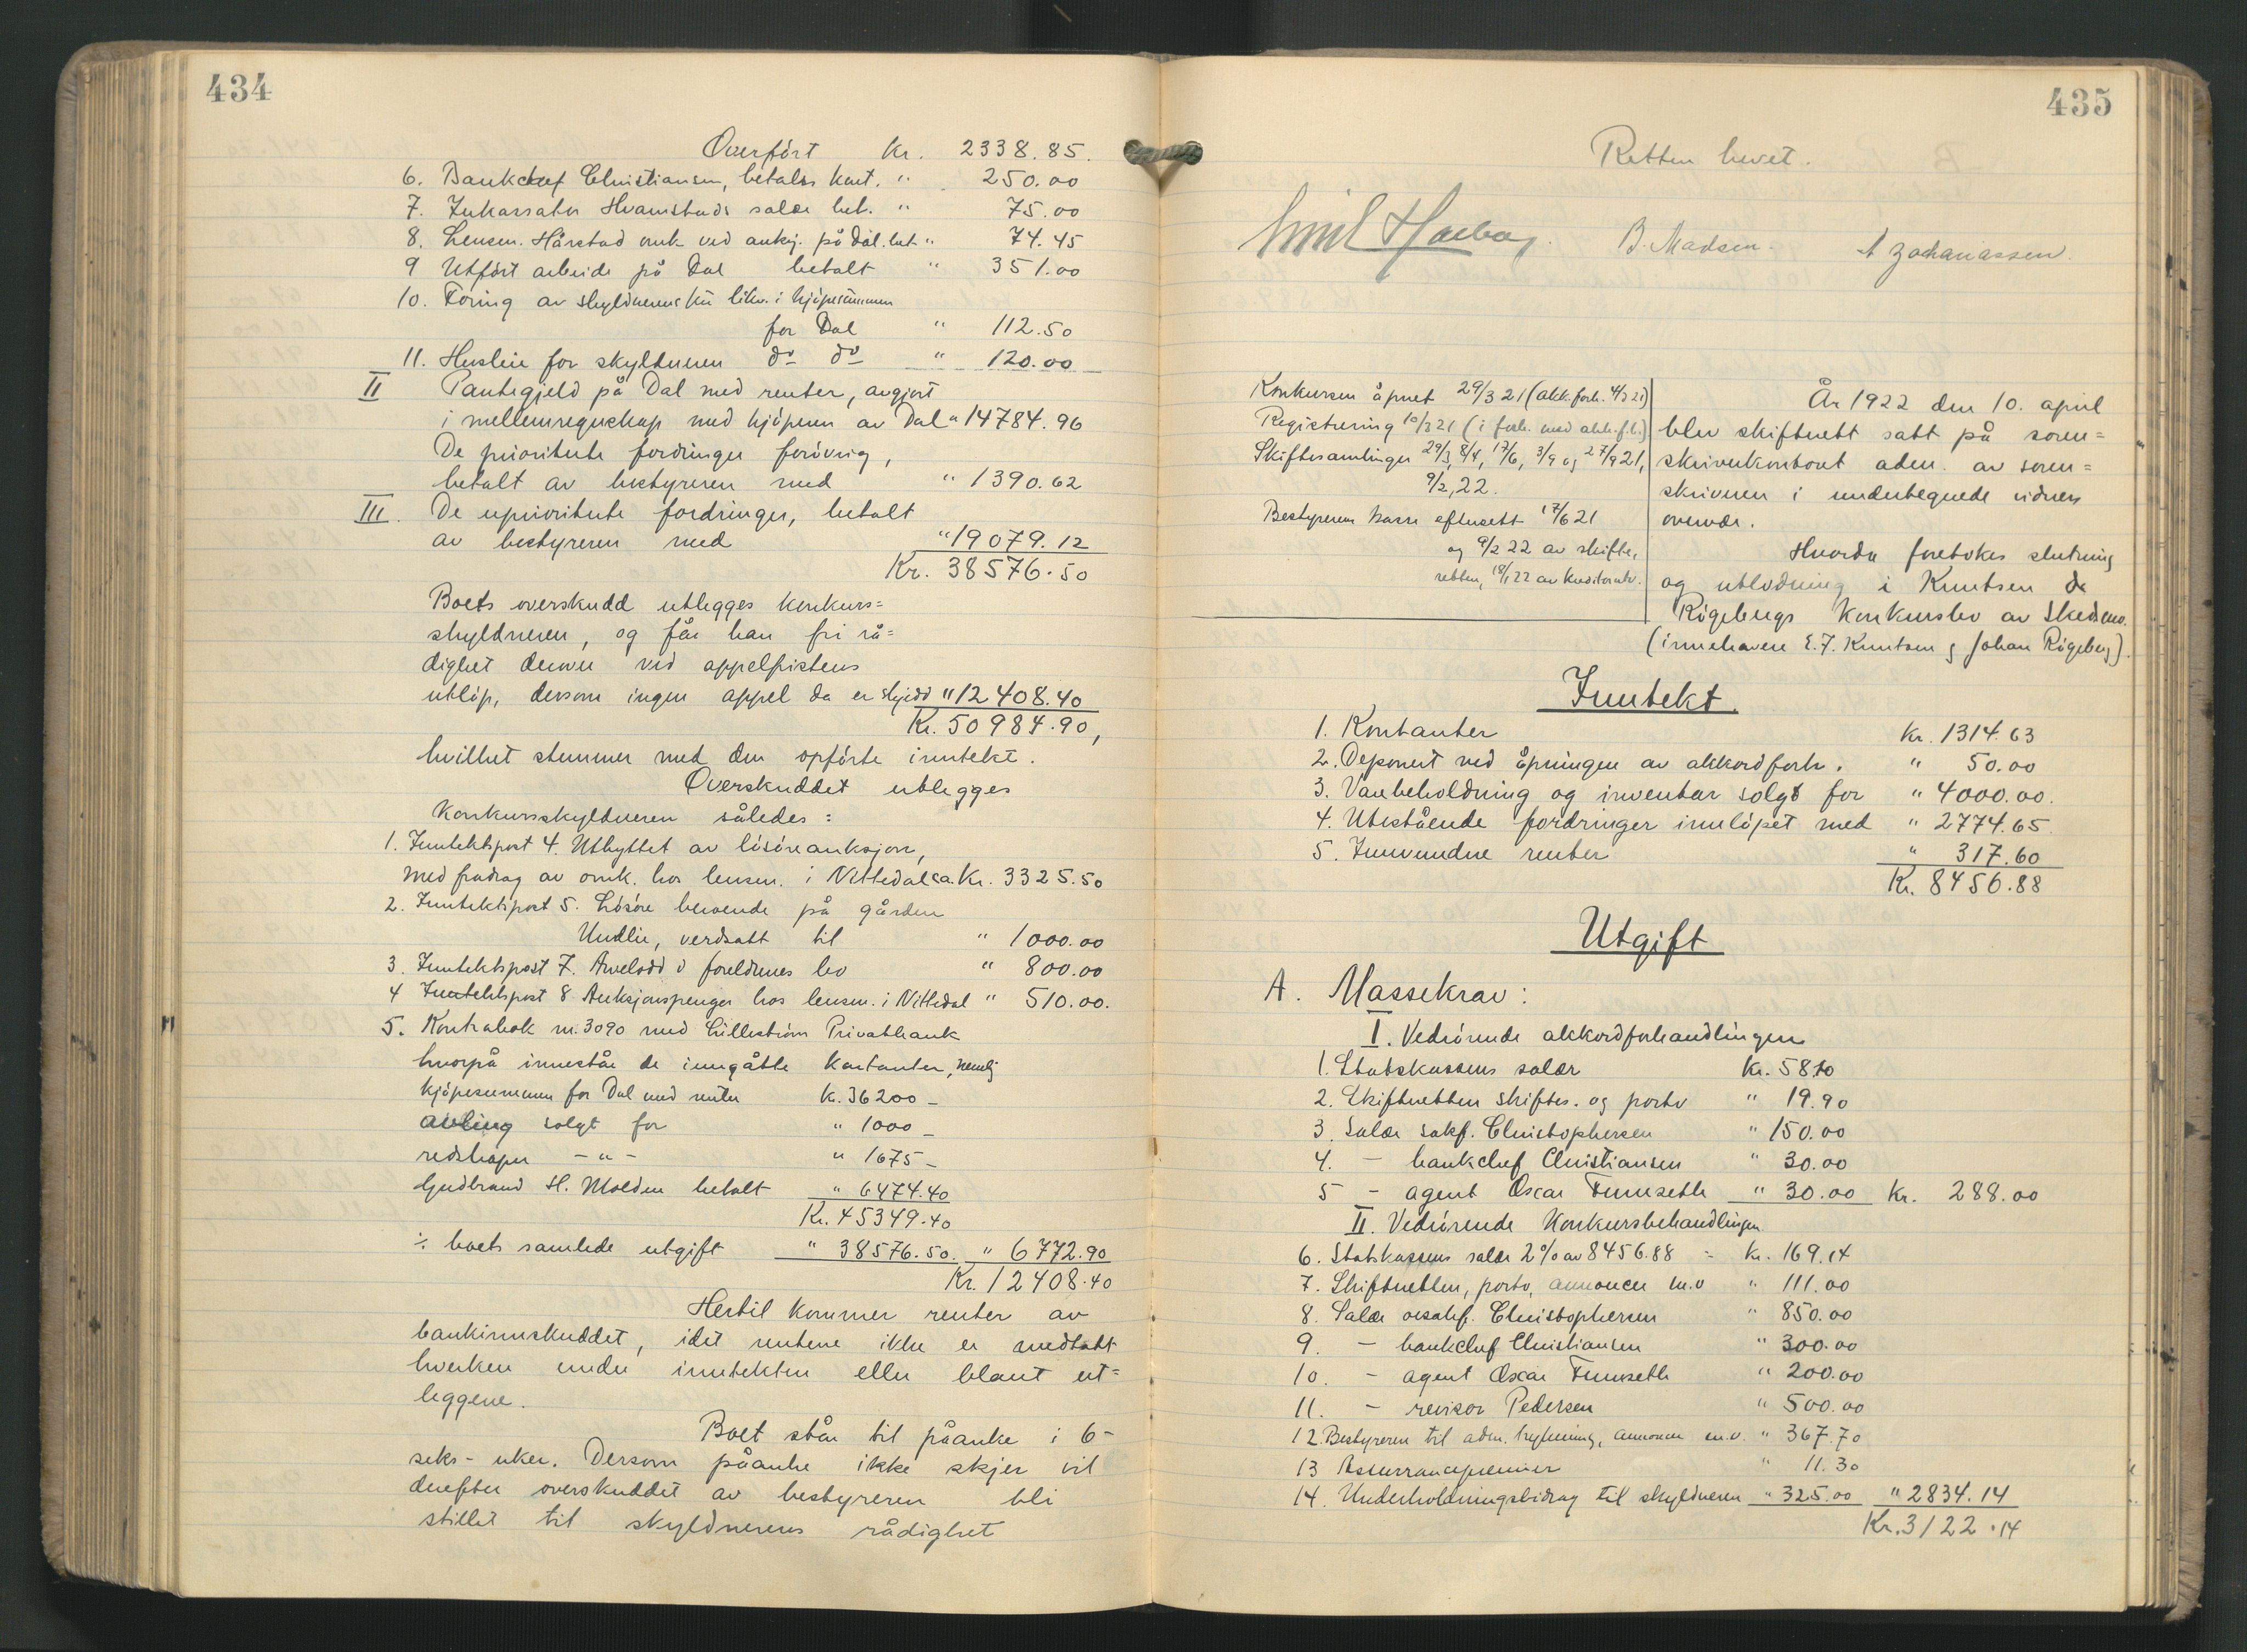 434
Overført kr. 2338.85.
6. Bankchef Christiansen, betales kont. " 250.00
7. Inkassator Hvamstads salær bet. " 75.00
8. Lensm. Hårstad omk. ved auksj. på Dal. bet. " 74.45
9 Utført arbeide på Dal betalt " 351.00
10. Foring av skyldnerens ku likv. i kjøpesummen
for Dal " 112.50
11. Husleie for skyldneren do do " 120.00
II Pantegjeld på Dal med renter, avgjort
i mellemregnskap med kjøperen av Dal " 14784.96
De prioriterte fordringer forøvrig,
betalt av bestyreren med " 1390.62
III. De uprioriterte fordringer, betalt
av bestyreren med " 19079.12
Kr. 38576.50
Boets overskudd utlegges konkurs=
skyldneren, og får han fri rå=
dighet derover ved appelfristens
utløp, dersom ingen appel da er skjedd " 12408.40
Kr. 50984.90,
hvilket stemmer med den opførte inntekt.
Overskuddet utlegges
konkursskyldneren således:
1. Inntektspost 4. Utbyttet av løsøreauksjon,
med fradrag av omk. hos lensm. i Nittedal ca. Kr. 3325.50
2. Inntektspost 5. Løsøre beroende på gården
Undlie, verdsatt til " 1000.00
3. Inntektspost 7. Arvelodd i foreldrenes bo " 800.00
4 Inntektspost 8 Auksjonspenger hos lensm. i Nittedal " 510.00.
5. Kontrabok nr. 3090 med Lillestrøm Privatbank
hvorpå innestår de inngåtte kontanter, nemlig
kjøpesummen for Dal med renter K. 36200 -
avling solgt for " 1000 -
redskaper - " - " 1675 -
Gudbrand H. Molden betalt " 6474.40
Kr. 45349.40
÷ boets samlede utgift " 38576.50. " 6772.90
Kr. 12408.40
Hertil kommer renter av
bankinnskuddet, idet rentene ikke er medtatt
hverken under inntekten eller blant ut=
leggene.
Boet står til påanke i 6-
seks- uker. Dersom påanke ikke skjer vil
derefter overskuddet av bestyreren bli
stillet til skyldnerens rådighet
435
Retten hevet.
B. Madsen. A Zachariassen.
Konkursen åpnet 29/3 21 (akk.forh. 4/3 21)
Registrering 10/3 21 (i forb. med akk.fh.)
Skiftesamlinger 29/3, 8/4, 17/6, 3/9 og 27/9 21,
9/2, 22.
Bestyrerens kasse eftersett 17/6 21
og 9/2 22 av skifte,
retten, 18/1 22 av kreditorutv.
År 1922 den 10. april
blev skifterett satt på soren=
skriverkontoret adm. av soren=
skriveren i undertegnede vidners
overvær.
Hvorda foretokes slutning
og utlodning i Knutsen &
Rigebergs konkursbo av Skedsmo.
(innehavere E. F. Knutsen og Johan Rigeberg).
Inntekt.
1. Kontanter kr. 1314.63
2. Deponert ved åpningen av akkordforh. " 50.00
3. Varebeholdning og inventar solgt for " 4000.00.
4. Utestående fordringer innløpet med " 2774.65
5. Innvundne renter " 317.60
Kr. 8456.88
Utgift
A. Massekrav:
I. Vedrørende akkordforhandlingen
1. Statskassens salær Kr. 58.10
2. Skifteretten skiftes. og porto " 19.90
3. Salær sakf. Christophersen " 150.00
4. - bankchef Christiansen " 30.00
5 - agent Oscar Furuseth " 30.00 Kr. 288.00
II. Vedrørende konkursbehandlingen
6. Statskassens salær 2% av 8456.88 = Kr. 169.14
7. Skifteretten, porto, annoncer m.v " 111.00
8. Salær o.r.sakf. Christophersen " 850.00
9. - bankchef Christiansen " 300.00
10. - agent Oscar Furuseth " 200.00
11. - revisor Pedersen " 500.00
12 Bestyreren til adm. annoncer m.v. " 367.70
13 Assurancepremier " 11.30
14. Underholdningsbidrag til skyldneren " 325.00 " 2834.14
Kr. 3122.14